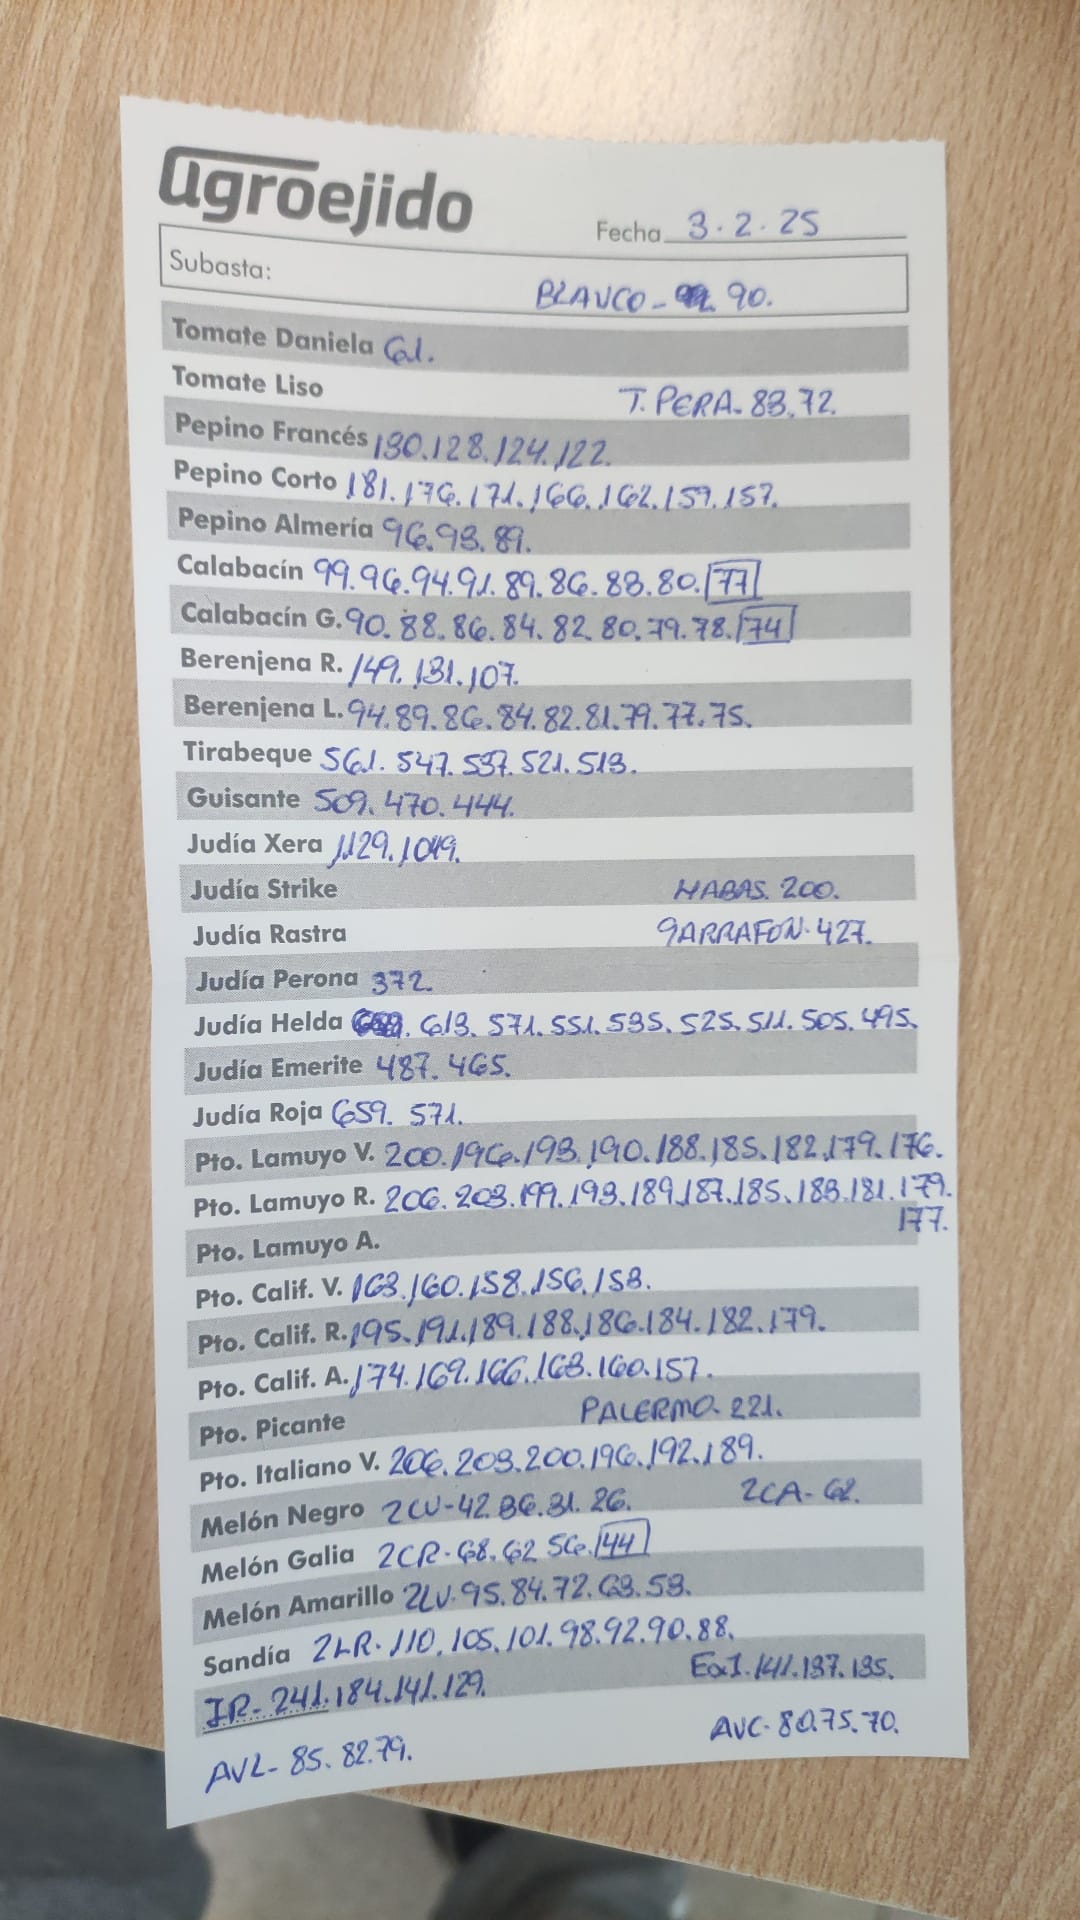 agroejido
Fecha 3.2.25
Subasta:
BLANCO- 90.
Tomate Daniela 61.
Tomate Liso T. PERA. 83.72.
Pepino Francés 130.128.124.122.
Pepino Corto 181.176.171.166.162.159.157.
Pepino Almería 96.93.89.
Calabacín 99.96.94.91.89.86.83.80.77
Calabacín G. 90.88.86.84.82.80.79.78.74
Berenjena R. 149.131.107.
Berenjena L. 94.89.86.84.82.81.79.77.75.
Tirabeque 561.547.537.521.513.
Guisante 509.470.444.
Judía Xera 1129.1049.
Judía Strike HABAS. 200.
Judía Rastra GARRAFON. 427.
Judía Perona 372.
Judía Helda 613.571.551.535.525.511.505.495.
Judía Emerite 487.465.
Judía Roja 659.571.
Pto. Lamuyo V. 200.196.193.190.188.185.182.179.176.
Pto. Lamuyo R. 206.203.199.193.189.187.185.183.181.179.
177.
Pto. Lamuyo A.
Pto. Calif. V. 163.160.158.156.153.
Pto. Calif. R. 195.191.189.188.186.184.182.179.
Pto. Calif. A. 174.169.166.163.160.157.
Pto. Picante PALERMO. 221.
Pto. Italiano V. 206.203.200.196.192.189.
Melón Negro 2CV-42.36.31.26. 2CA-62.
Melón Galia 2CR-68.62.56.44
Melón Amarillo 2LV.95.84.72.63.53.
Sandía 2LR.110.105.101.98.92.90.88.
IR-241.184.141.129. 141.137.135.
AVL-85.82.79. AVC-80.75.70.